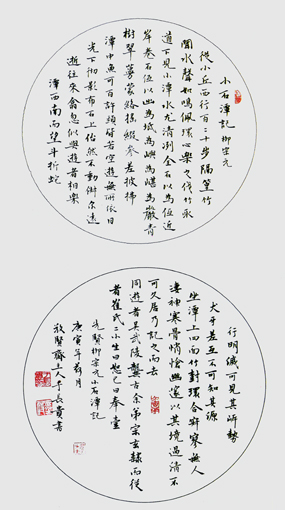 小石潭記 柳宗元
從小丘西行百二十步隔篁竹
聞水聲如鳴佩環心樂之伐竹取
道下見小潭水尤清洌全石以為底近
岸卷石底以出為坻為嶼為嵁為巖青
樹翠蔓蒙絡搖綴參差披拂
潭中魚可百許頭皆若空遊無所依日
光下徹影布石上佁然不動俶爾遠
逝往來翕忽似與遊者相樂
潭西南而望斗折蛇
行明滅可見其岸勢
犬牙差互不可知其源
坐潭上四面竹樹環合寂寥無人
淒神寒骨悄愴幽邃以其境過清不
可久居乃記之而去
同遊者吳武陵龔古余弟宗玄隸而從
者崔氏二小生曰恕己曰奉壹
先賢柳宗元小石潭記
庚寅年月
賢齋主人于長貴書